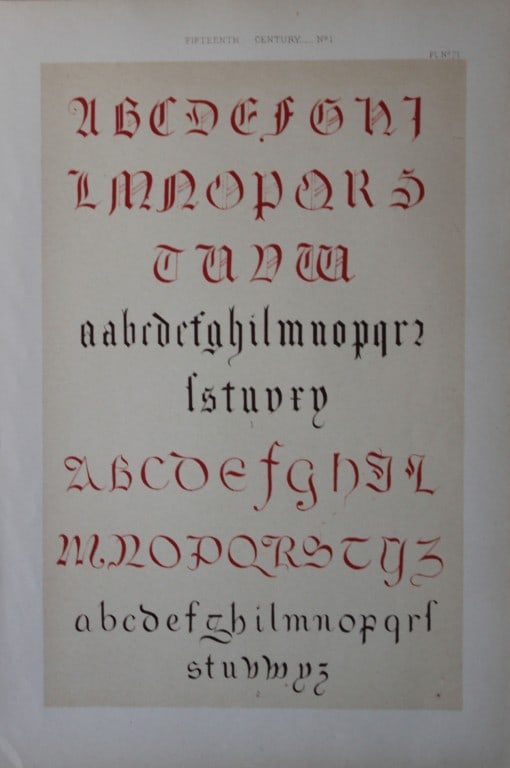 FIFTEENTH CENTURY.... Nº 1
Pl. Nº 71
A B C D E F G H I
L M N O P Q R S
T U V W
a a b c d e f g h i l m n o p q r ꝛ
ſ s t u v x y
A B C D E f G H S L
M N O P Q R S T Y Z
a b c d e f g h i l m n o p q r ſ
s t u v w y z